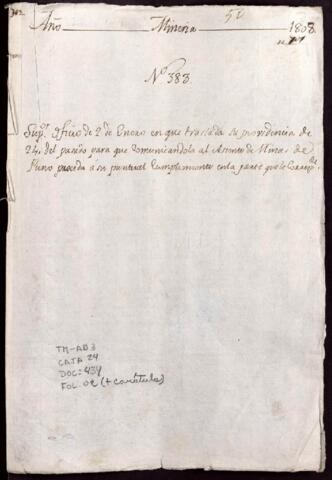 52
Año Mineria 1808
Nº 383.
Supr. Oficio de 2 de Enero en que traslada su providencia de
24, del pasado para que comunicandola al Asiento de Minas de
Puno proceda a su puntual Cumplimiento en la parte que le
TM-AB3
CAJA 24
DOC: 434
FOL. 02 (+ carátula)